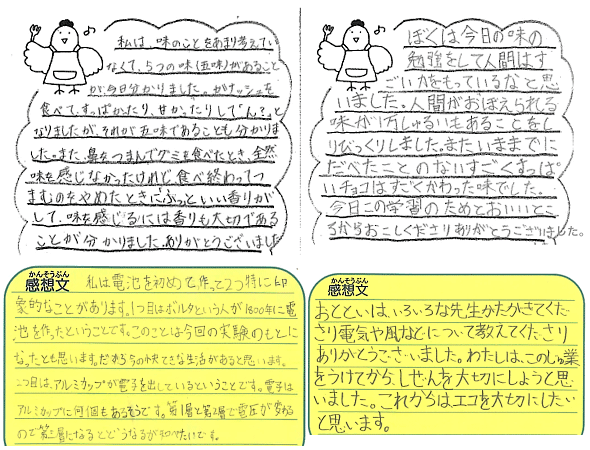 私は、味のことをあまり考えてい
なくて、5つの味(五味)があること
が今日分かりました。ガナッシュを
食べて、すっぱかったり、甘かったりして「ん?」と
なりましたが、それが五味であることも分かりま
した。また、鼻をつまんでグミを食べたとき、全然
味を感じなかったけれど、食べ終わってつ
まむのをやめたときにぶわっといい香りが
して、味を感じるには香りも大切である
ことが分かりました。ありがとうございました
ぼくは今日の味の
勉強をして人間はす
ごい力をもっているなと思
いました。人間がおぼえられる
味が1万しゅるいもあることをし
りびっくりしました。またいままでに
たべたことのないすごくすっぱ
いチョコはすごくかわった味でした。
今日この学習のためとおいとこ
ろからおこしくださりありがとうございました。
かんそうぶん
感想文
私は電池を初めて作って2つ特に印
象的なことがあります。1つ目はボルタという人が1800年に電
池を作ったということです。このことは今回の実験のもとに
なったとも思います。だから今の快てきな生活があると思います。
2つ目は、アルミカップが電子を出しているということです。電子は
アルミカップに何個もあるそうです。第1層と第2層で電圧が変わる
ので第三層になるとどうなるか知りたいです。
かんそうぶん
感想文
おとといは、いろいろな先生かたがきてくだ
さり電気や風などについて教えてくださり
ありがとうございました。わたしは、このじゅ業
をうけてから、しぜんを大切にしようと思
いました。これからはエコを大切にしたい
と思います。